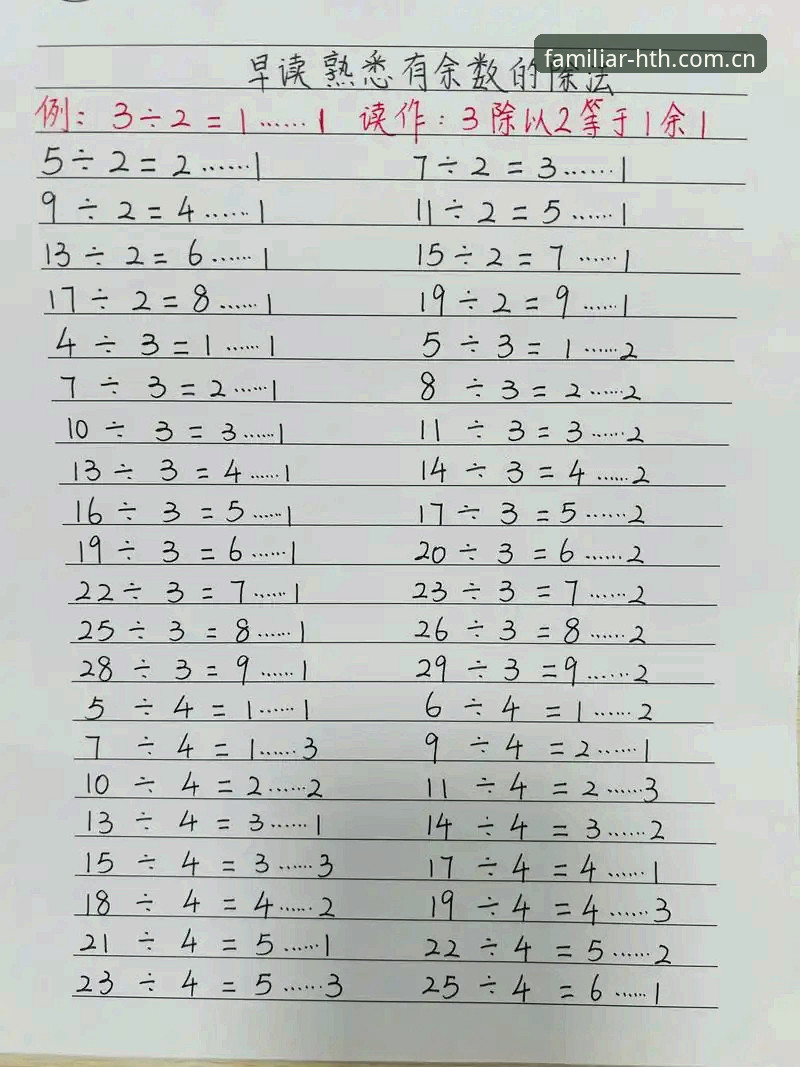 familiar-hth.com.cn
早读熟悉有余数的除法
例: 3÷2=1……1 读作:3除以2等于1余1
5÷2=2……1 7÷2=3……1
9÷2=4……1 11÷2=5……1
13÷2=6……1 15÷2=7……1
17÷2=8……1 19÷2=9……1
4÷3=1……1 5÷3=1……2
7÷3=2……1 8÷3=2……2
10÷3=3……1 11÷3=3……2
13÷3=4……1 14÷3=4……2
16÷3=5……1 17÷3=5……2
19÷3=6……1 20÷3=6……2
22÷3=7……1 23÷3=7……2
25÷3=8……1 26÷3=8……2
28÷3=9……1 29÷3=9……2
5÷4=1……1 6÷4=1……2
7÷4=1……3 9÷4=2……1
10÷4=2……2 11÷4=2……3
13÷4=3……1 14÷4=3……2
15÷4=3……3 17÷4=4……1
18÷4=4……2 19÷4=4……3
21÷4=5……1 22÷4=5……2
23÷4=5……3 25÷4=6……1